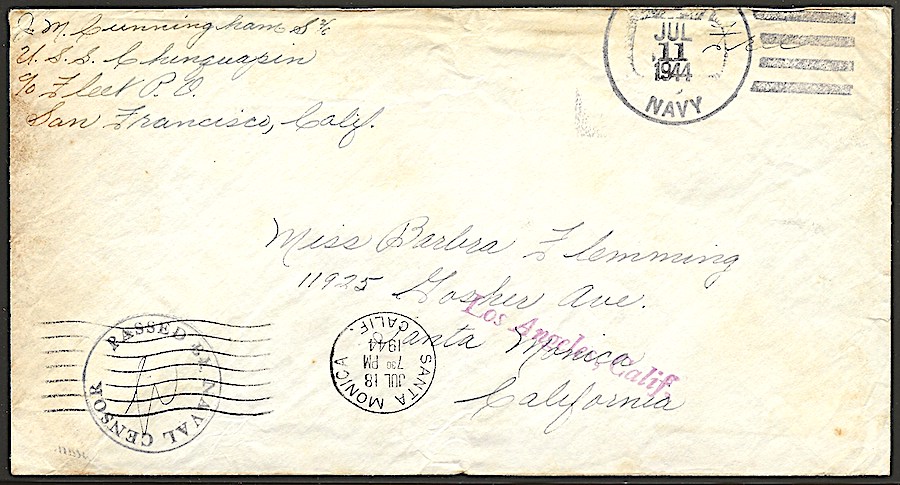 J. M. Cunningham S 2/c
U. S. S. Chinquapin
c/o Fleet P. O.
San Francisco, Calif.
JUL
11
1944
NAVY
Free
Miss Barbra Flemming
11925 Goshen Ave.
Santa Monica
California
Los Angeles, Calif.
PASSED BY NAVAL CENSOR
SANTA MONICA
JUL 18
7 30 PM
1944
CALIF.